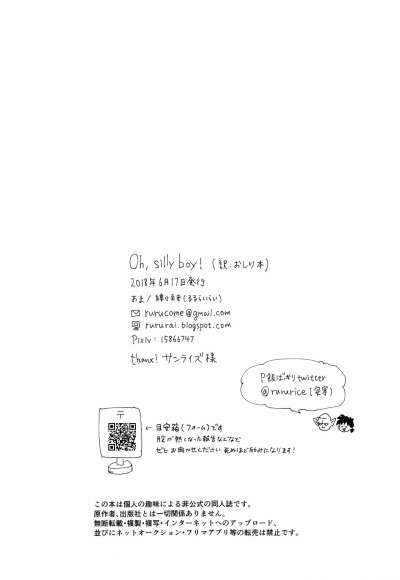 Oh, silly boy! (訳:おしり本)
2018年6月17日発行
rurucome@gmail.com
rururai.blogspot.com
Pixiv: 15866747
thanx! サンライズ様
ばかりtwitter
@rururice
〒
← 目安箱(フォーム)です
が熱くなった報告などなど
ぜひお聞かせください
この本は個人の趣味による非公式の同人誌です。
原作者、出版社とは一切関係ありません。
無断転載・複製・複写・インターネットへのアップロード、
並びにネットオークション・フリマアプリ等の転売は禁止です。